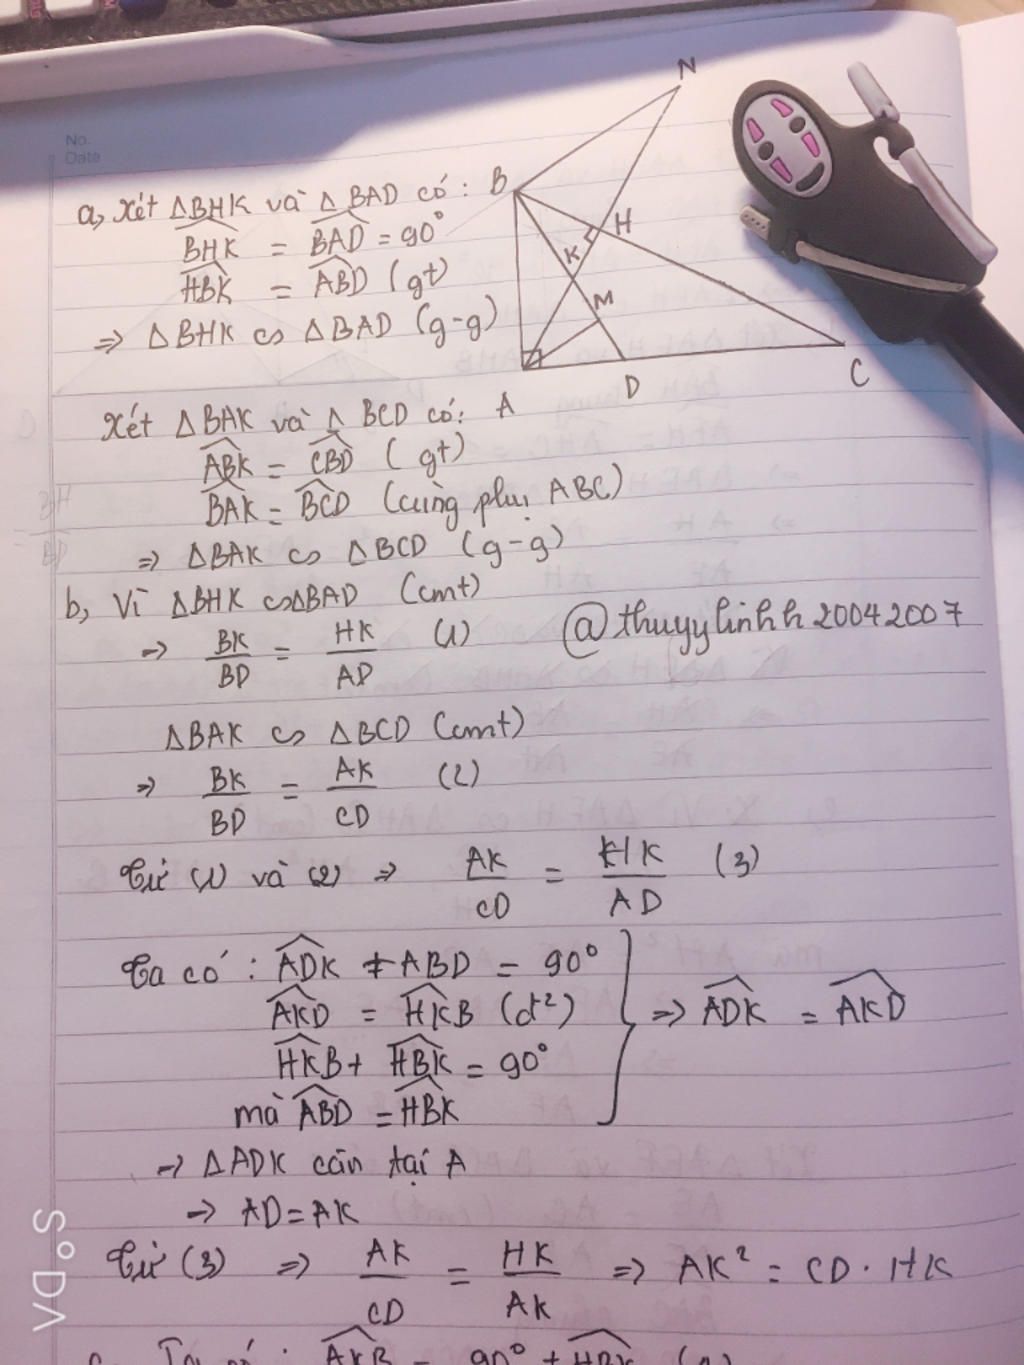 No.
Date
N
a, Xét ΔBHK và Δ BAD có:
B
BHK = BAD = 90°
H
HBK = ABD (gt)
K
M
=> ΔBHK ᔕ ΔBAD (g-g)
D
C
A
Xét ΔBAK và Δ BCD có:
ABK = CBD (gt)
BAK = BCD (cùng phụ ABC)
=> ΔBAK ᔕ ΔBCD (g-g)
b, Vì ΔBHK ᔕ ΔBAD (cmt)
=> BK/BD = HK/AD (1)
@thuyylinhh20042007
ΔBAK ᔕ ΔBCD (cmt)
=> BK/BD = AK/CD (2)
Từ (1) và (2) => AK/CD = HK/AD (3)
Ta có: ADK + ABD = 90°
AKD = HKB (đ²)
HKB + HBK = 90°
mà ABD = HBK
=> ADK = AKD
=> ΔADK cân tại A
=> AD = AK
Từ (3) => AK/CD = HK/AK => AK² = CD . HK
Ta có: AKB = 90° + HBK
SODA